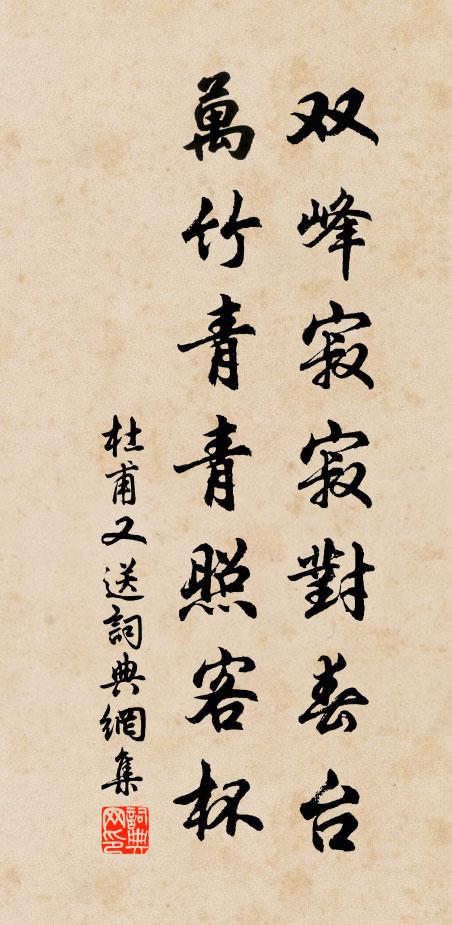 双峰寂寂對春台
萬竹青青照客杯
杜甫又送詞典網集
詞典网印